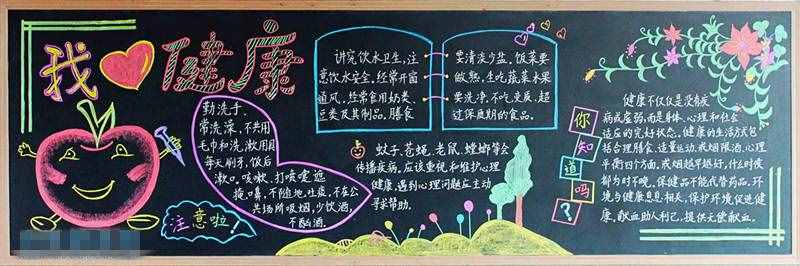 我❤健康
勤洗手、
常洗澡,不共用
毛巾和洗漱用具
每天刷牙,饭后
漱口。咳嗽、打喷嚏遮
掩口鼻,不随地吐痰,不在公
共场所吸烟,少饮酒,
不酗酒.
注意啦!
讲究饮水卫生,注
意饮水安全,经常开窗
通风,经常食用奶类、
豆类及其制品。膳食
要清淡少盐,饭菜要
做熟,生吃蔬菜水果
要洗净,不吃变质、超
过保质期的食品。
蚊子、苍蝇、老鼠、蟑螂等会
传播疾病。应该重视和维护心理
健康,遇到心理问题应主动
寻求帮助。
你知道吗?
健康不仅仅是没有疾
病或虚弱,而是身体、心理和社会
适应的完好状态。健康的生活方式包
括合理膳食、适量运动、戒烟限酒、心理
平衡四个方面。戒烟越早越好,什么时候
都为时不晚。保健品不能代替药品。环
境与健康息息相关,保护环境促进健
康。献血助人利己,提倡无偿献血。